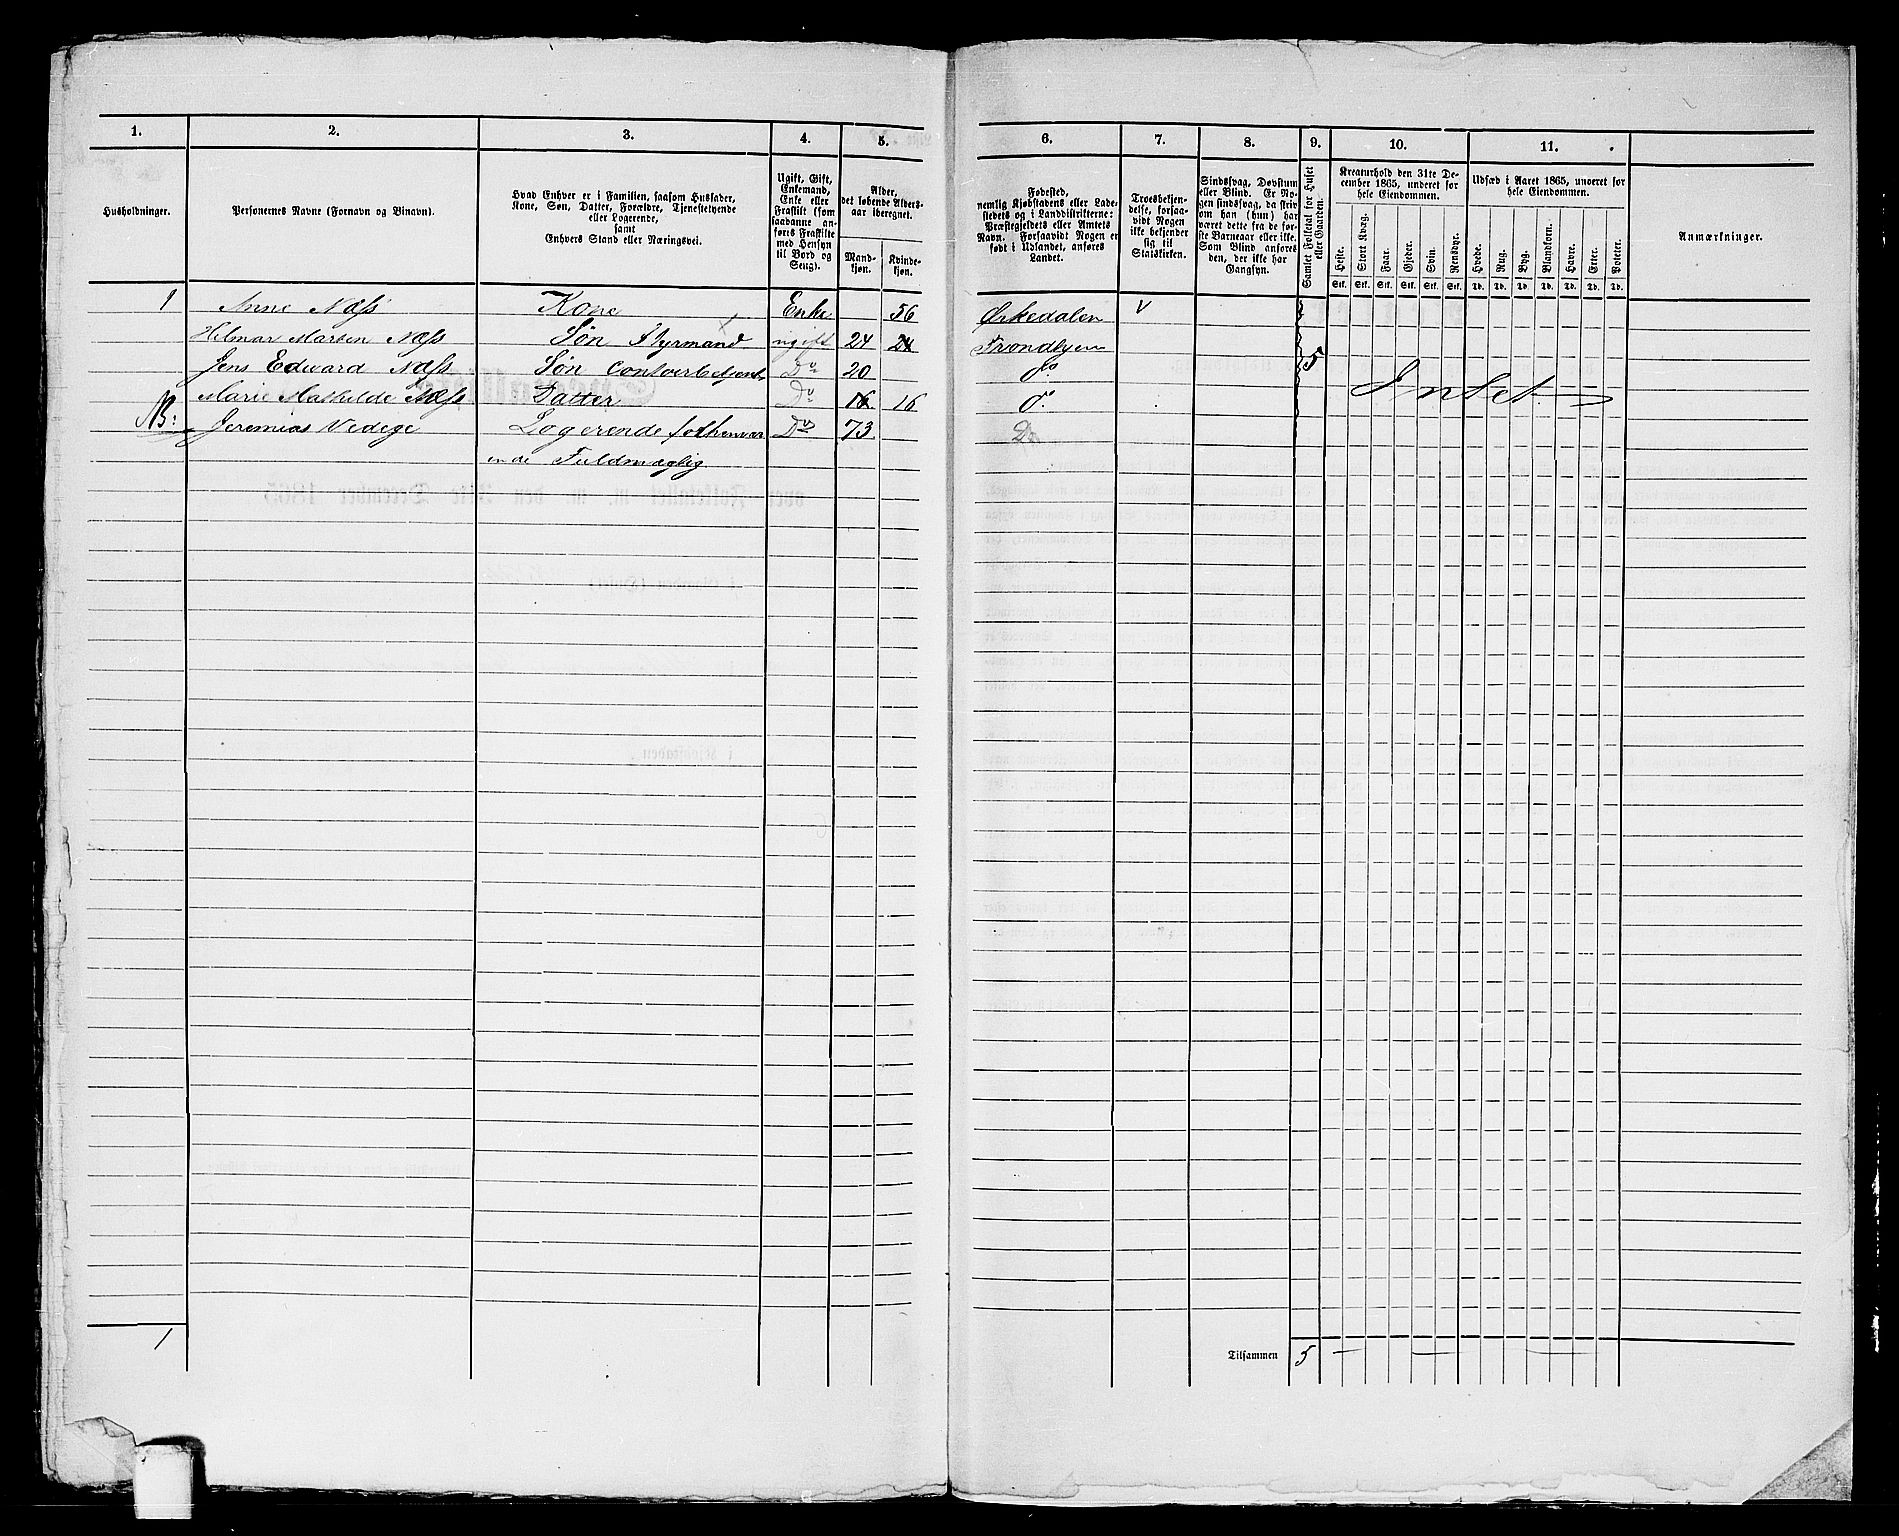 1.
2.
3.
4.
5.
6.
7.
8.
9.
10.
11.
Husholdninger.
Personernes Navne (Fornavn og Binavn).
Hvad Enhver er i Familien, saasom Husfader,
Kone, Søn, Datter, Forældre, Tjenestetyende
eller Logerende,
samt
Enhvers Stand eller Næringsvei.
Ugift, Gift,
Enkemand,
Enke eller
Fraskilt (som
saadanne an-
føres Fraskilte
med Hensyn
til Bord og
Seng).
Alder,
det løbende Alders-
aar iberegnet.
Mand-
kjøn.
Kvinde-
kjøn.
Fødested,
nemlig Kjøbstadens eller Lade-
stedets og i Landdistrikterne:
Præstegjeldets eller Amtets
Navn. Forsaavidt Nogen er
født i Udlandet, anføres
Landet.
Troesbekjen-
delse, forsaa-
vidt Nogen
ikke bekjender
sig til
Statskirken.
Sindssvag, Døvstum
eller Blind. Er No-
gen sindssvag, da skriv
om han (hun) har
været dette fra de før-
ste Barneaar eller ikke.
Som Blind anføres
den, der ikke har
Gangsyn.
Samlet Folketal for Huset
eller Gaarden.
Kreaturhold den 31te De-
cember 1865, underet for
hele Eiendommen.
Heste.
Stort Kvæg.
Faar.
Gjeder.
Svin.
Rensdyr.
Stk. Stk. Stk. Stk. Stk. Stk.
Udsæd i Aaret 1865, unoeret for
hele Eiendommen.
Hvede.
Rug.
Byg.
Blandkorn.
Havre.
Erter.
Poteter.
Td. Td. Td. Td. Td. Td. Td.
Anmærkninger.
1 Anne Næss Kone Enke 56 Ørkedalen V
Helmar Marten Næss Søn Styrmand ugift 24 24 Trondhjem
Jens Edward Næss Søn Contoirbetjent Do 20 do 5
Marie Mathilde Næss Datter Do 16 16 do Intet
NB: Jeremias Vedege Logerende forhenvær Do 73 Do
ende Fuldmægtig
1
Tilsammen 5